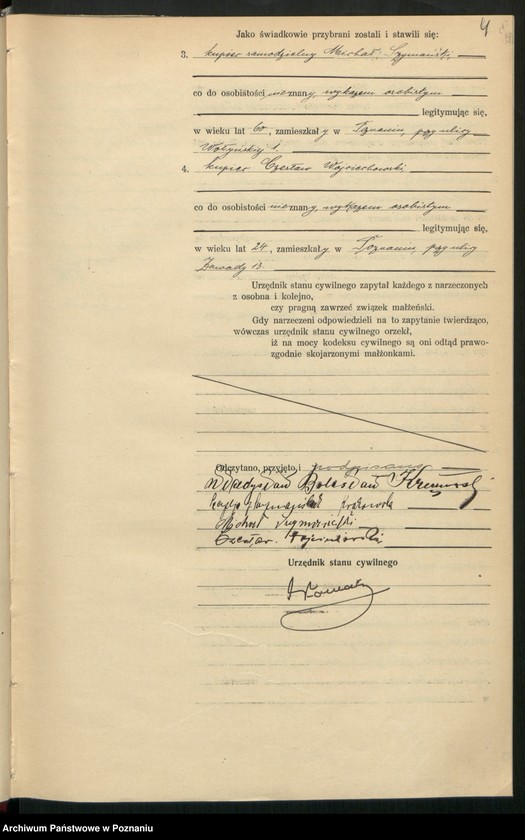 4
Jako świadkowie przybrani zostali i stawili się:
3. kupiec samodzielny Michał Szymański,
co do osobistości nieznany, wykazem osobistym
legitymując się,
w wieku lat 60, zamieszkały w Poznaniu, przy ulicy
Wołyńskiej 1.
4. kupiec Czesław Wojciechowski
co do osobistości nieznany, wykazem osobistym
legitymując się,
w wieku lat 24, zamieszkały w Poznaniu, przy ulicy
Zawady 13.
Urzędnik stanu cywilnego zapytał każdego z narzeczonych
z osobna i kolejno,
czy pragną zawrzeć związek małżeński.
Gdy narzeczeni odpowiedzieli na to zapytanie twierdząco,
wówczas urzędnik stanu cywilnego orzekł,
iż na mocy kodeksu cywilnego są oni odtąd prawo-
zgodnie skojarzonymi małżonkami.
Odczytano, przyjęto i podpisano
Władysław Bolesław
Michał Szymański
Czesław Wojciechowski
Urzędnik stanu cywilnego
Archiwum Państwowe w Poznaniu